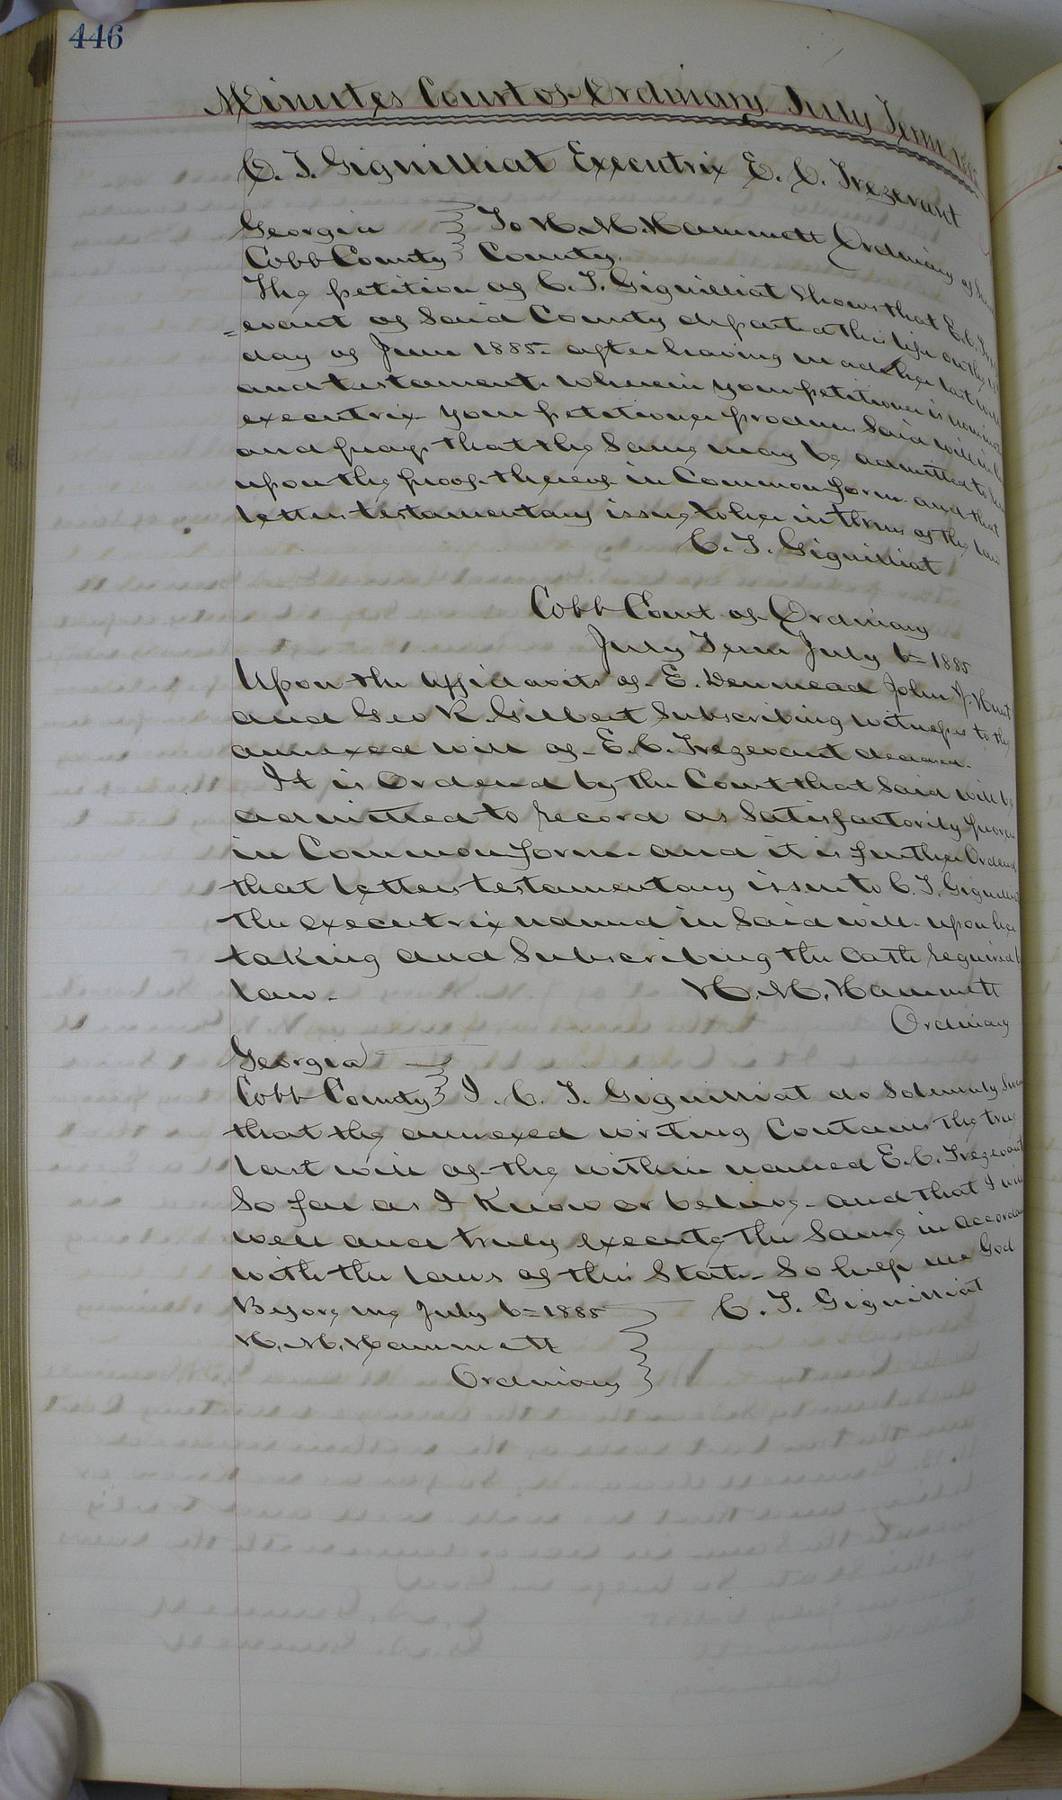 446
Minutes Court of Ordinary July Term 1885
C. T. Gignilliat Executrix E. C. Trezevant
Georgia } To H. M. Hammett Ordinary of said
Cobb County } County.
The petition of C. T. Gignilliat Shows that E. C. Trez
=evant of Said County departed this life on the
day of June 1885. after having made her last will
and testament. wherein your petitioner is nominated
executrix your petitioner produces Said will in
and prays that the Same may be admitted to
upon the proof thereof in Common form and that
letters testamentary issue to her in terms of the law
C. T. Gignilliat
Cobb Court of Ordinary
July Term July 6= 1885
Upon the Affidavits of E. Denmead John J. Hunt
and Geo R. Gilbert Subscribing witnesses to the
annexed will of E. C. Trezevant deceased.
It is Ordered by the Court that Said will be
admitted to record as Satisfactorily proven
in Common form. and it is further Ordered
that letters testamentary issue to C. T. Gignilliat
the executrix named in Said will. upon her
taking and Subscribing the oath required by
law. H. M. Hammett
Ordinary
Georgia
Cobb County } I. C. T. Gignilliat do Solemnly Swear
that the annexed writing Contains the true
last will of the within named E. C. Trezevant
So far as I Know or believe. and that I will
well and truly execute the Same in accordance
with the laws of this State. So help me God
Before me July 6= 1885 } C. T. Gignilliat
H. M. Hammett
Ordinary